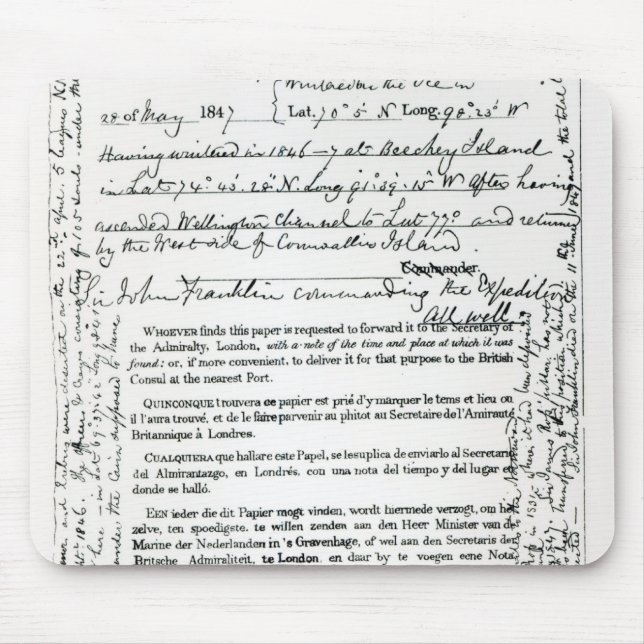 Wintered in the Ice in
28 of May 1847 { Lat. 70° 5' N Long: 98° 23' W
Having wintered in 1846–7 at Beechey Island
in Lat 74° 43' 28" N. Long 91° 39' 15" W After having
ascended Wellington Channel to Lat 77° and return
by the West side of Cornwallis Island.
Commander.
Sir John Franklin commanding the Expedition
All well
WHOEVER finds this paper is requested to forward it to the Secretary of
the Admiralty, London, with a note of the time and place at which it was
found: or, if more convenient, to deliver it for that purpose to the British
Consul at the nearest Port.
QUINCONQUE trouvera ce papier est prié d'y marquer le tems et lieu ou
il l'aura trouvé, et de le faire parvenir au phitot au Secretaire de l'Amirauté
Britannique à Londres.
CUALQUIERA que hallare este Papel, se le suplica de enviarlo al Secretari
del Almirantazgo, en Londrés, con una nota del tiempo y del lugar en
donde se halló.
EEN ieder die dit Papier mogt vinden, wordt hiermede verzogt, om het
zelve, ten spoedigste, te willen zenden aan den Heer Minister van de
Marine der Nederlanden in 's Gravenhage, of wel aan den Secretaris der
Britsche Admiraliteit, te London, en daar by te voegen eene Nota
and Erebus were deserted on the 22nd April. 5 leagues NN
1846. The Officers & Crews consisting of 105 souls under the
here in Lat 69° 37' 42" Long 98° 41'
under the Cairn supposed to have
in 1831 where it had been deposited
Sir James Ross' pillar has not
transferred to this position which
Sir John Franklin died on the 11 June 1847 and the total l